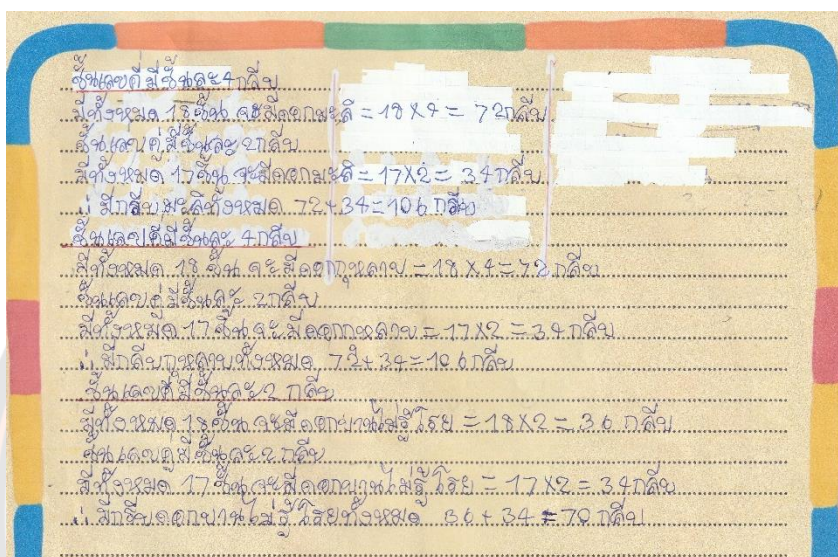 ชั้นเลขคี่มีชั้นละ 4 กลีบ
มีทั้งหมด 18 ชั้น จะมีดอกมะลิ = 18 X 4 = 72 กลีบ
ชั้นเลขคู่มีชั้นละ 2 กลีบ
มีทั้งหมด 17 ชั้น จะมีดอกมะลิ = 17 X 2 = 34 กลีบ
∴ มีกลีบมะลิทั้งหมด 72 + 34 = 106 กลีบ
ชั้นเลขคี่มีชั้นละ 4 กลีบ
มีทั้งหมด 18 ชั้น จะมีดอกกุหลาบ = 18 X 4 = 72 กลีบ
ชั้นเลขคู่มีชั้นละ 2 กลีบ
มีทั้งหมด 17 ชั้น จะมีดอกกุหลาบ = 17 X 2 = 34 กลีบ
∴ มีกลีบกุหลาบทั้งหมด 72 + 34 = 106 กลีบ
ชั้นเลขคี่มีชั้นละ 2 กลีบ
มีทั้งหมด 18 ชั้น จะมีดอกบานไม่รู้โรย = 18 X 2 = 36 กลีบ
ชั้นเลขคู่มีชั้นละ 2 กลีบ
มีทั้งหมด 17 ชั้น จะมีดอกบานไม่รู้โรย = 17 X 2 = 34 กลีบ
∴ มีกรีบดอกบานไม่รู้โรยทั้งหมด 36 + 34 = 70 กลีบ